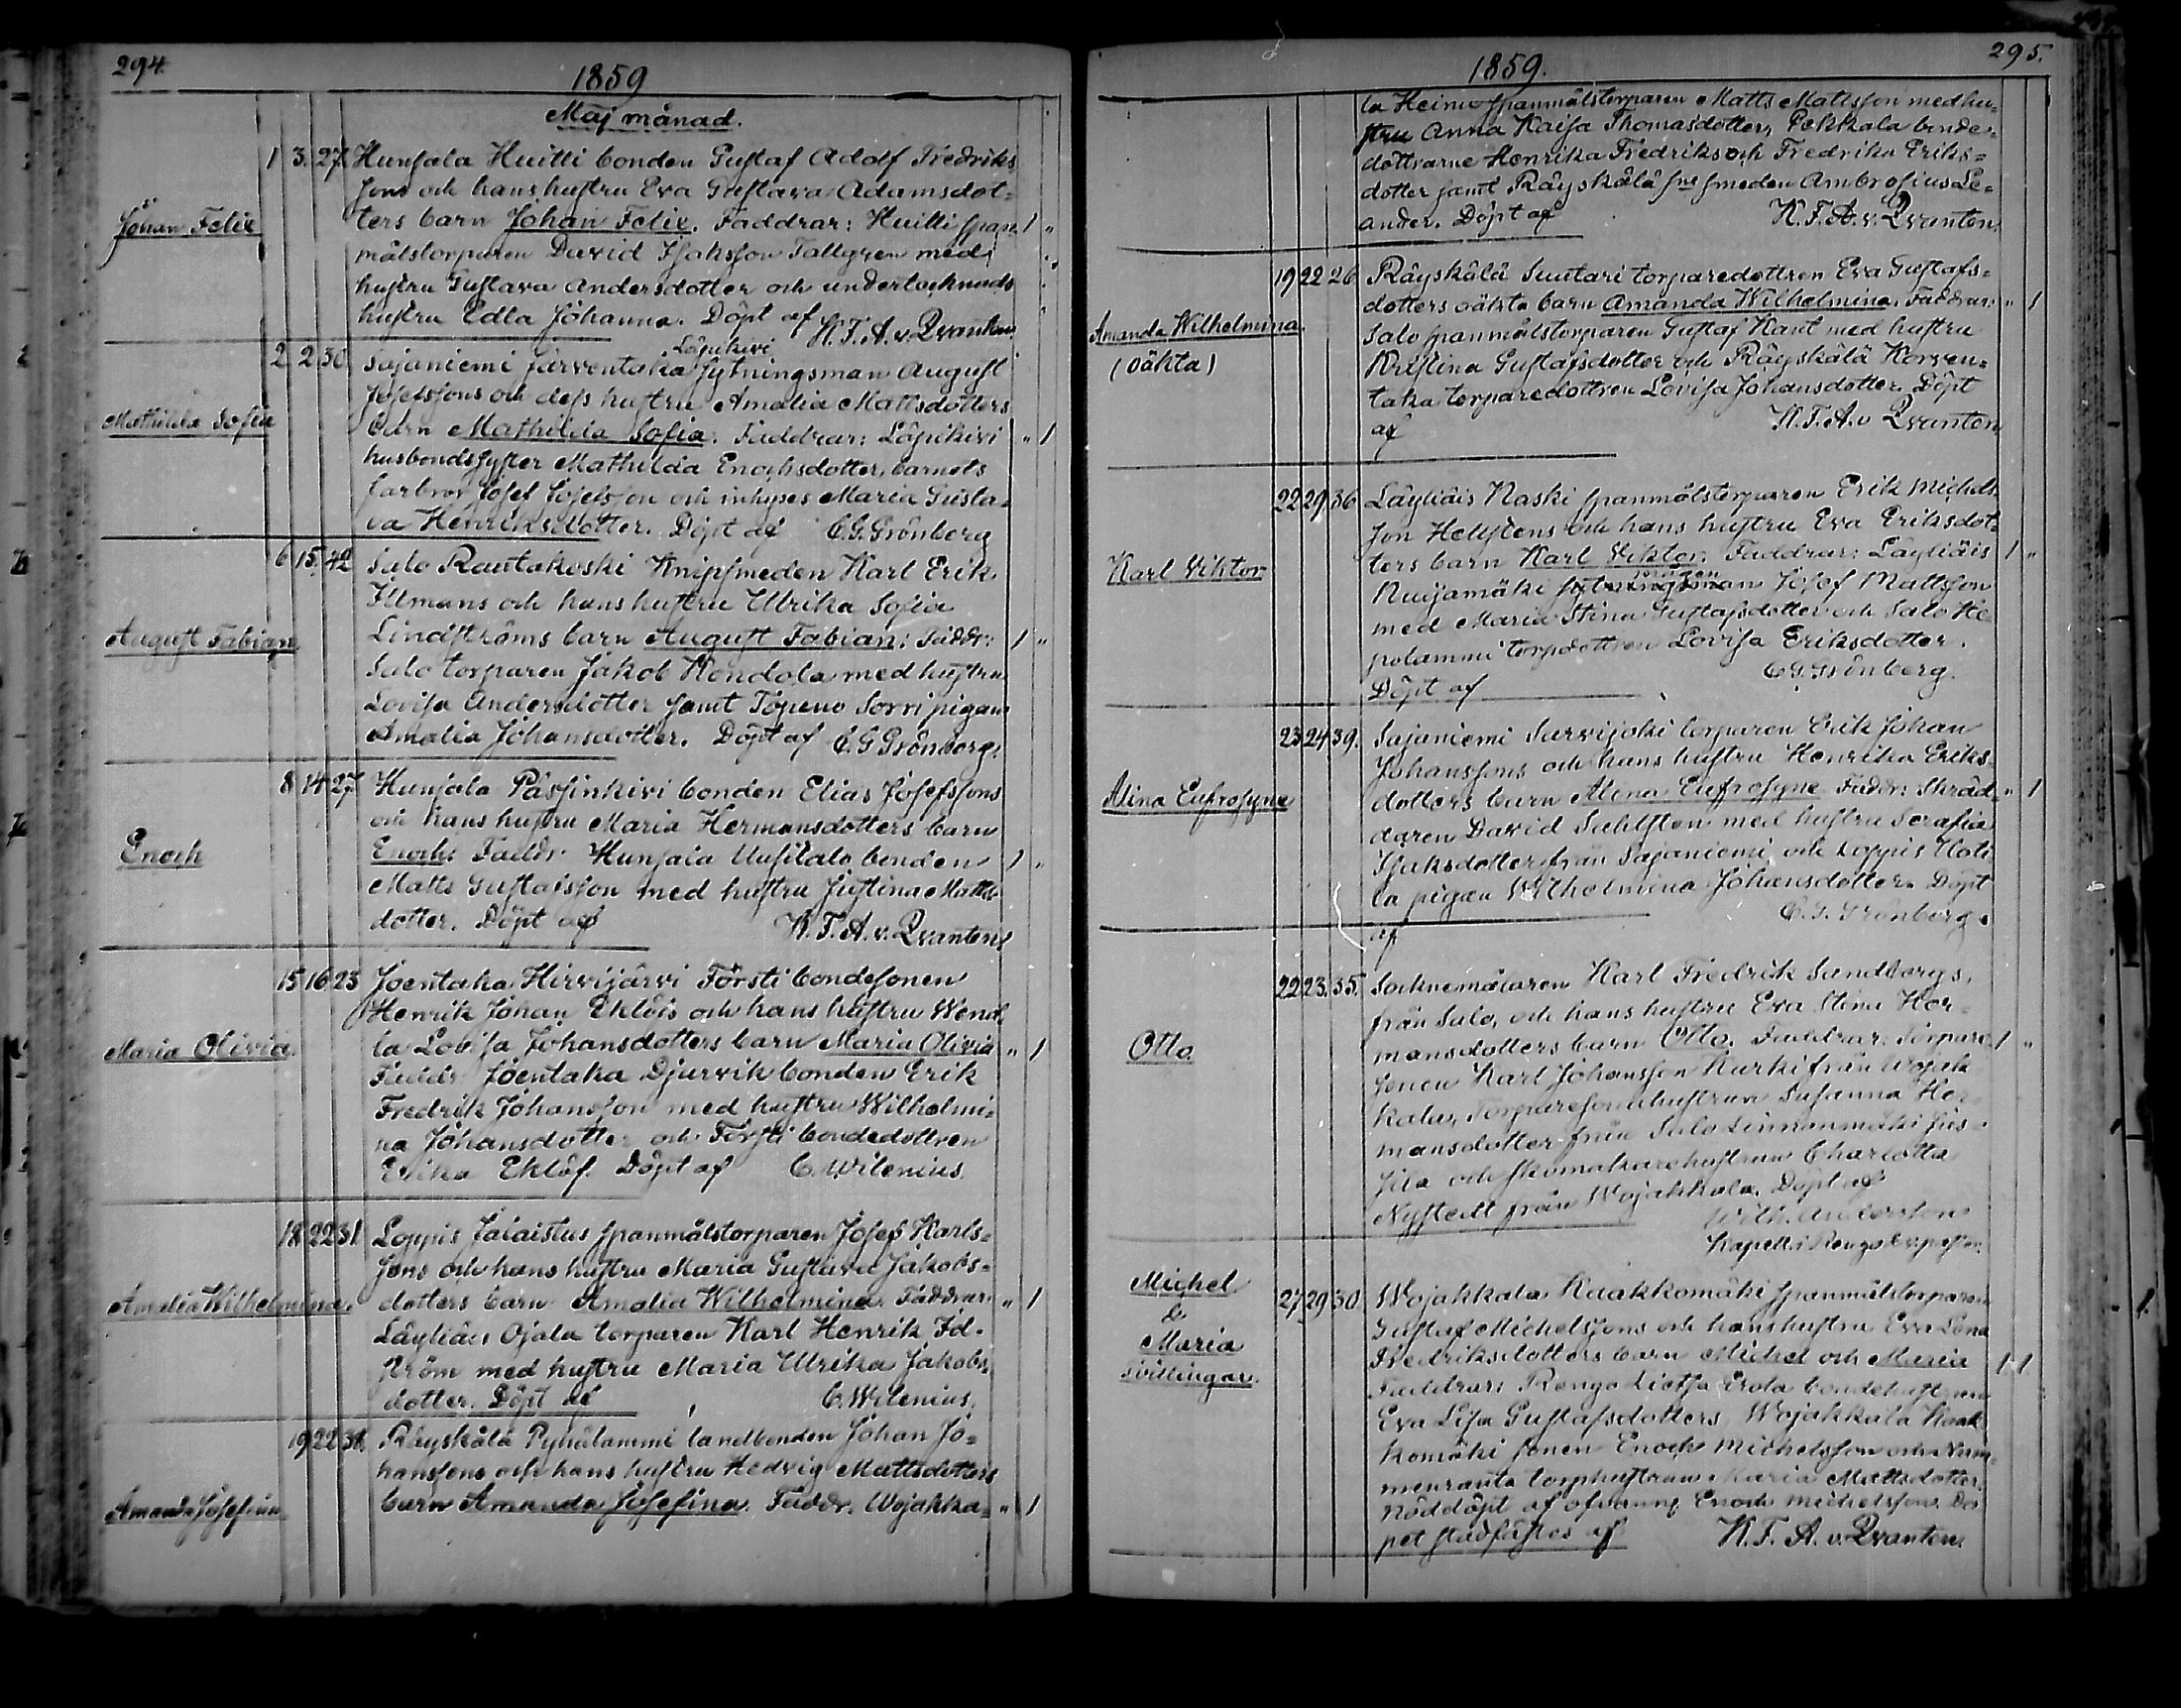 294.
1859
Maj månad.
Johan Felix
1 3. 27. Hunsala Huitti bonden Gustaf Adolf Fredriks
sons och hans hustru Eva Gustava Adamsdot=
ters barn Johan Felix. Faddrar: Huitti span= 1 "
målstorparen David Isaksson Tallgren med
hustru Gustava Andersdotter och
hustru Edla Johanna. Döpt af K. F. A. v. Qvanten.
Läpikivi
Mathilda Sofia
2 2 30 Sajaniemi Järventaka hyrningsman August
Josefssons och dess hustru Amalia Mattsdotters
barn Mathilda Sofia. Faddrar: Läpikivi " 1
husbondssyster Mathilda Enochsdotter, barnets
farbror Josef Josefsson och inhyses Maria Gusta=
va Henriksdotter. Döpt af C. G. Grönberg
August Fabian
6 15. 42 Salo Rautakoski Knipsmeden Karl Erik
Illmans och hans hustru Ulrika Sofia
Lindströms barn August Fabian: Faddr: 1 "
Salo torparen Jakob Kondola med hustru
Lovisa Andersdotter samt Topeno Sorri pigan
Amalia Johansdotter. Döpt af C. G Grönberg.
Enoch
8 14 27 Hunsala Pässinkivi bonden Elias Josefssons
och hans hustru Maria Hermansdotters barn
Enoch: Faddr. Hunsala Uusitalo bonden 1 "
Matts Gustafsson med hustru Justina Matts
dotter. Döpt af K. F. A. v. Qvanten.
Maria Olivia
15 16 23 Joentaka Hirvijärvi Försti bondesonen
Henrik Johan Eklöfs och hans hustru Wend=
la Lovisa Johansdotters barn Maria Olivia " 1
Faddr. Joentaka Djurvik bonden Erik
Fredrik Johansson med hustru Wilhelmi=
na Johansdotter och Försti bondedottren
Erika Eklöf. Döpt af C. Wilenius.
Amalia Wilhelmina.
18 22 31 Loppis Jalaistus spanmålstorparen Josef Karls=
sons och hans hustru Maria Gustava Jakobs=
dotters barn Amalia Wilhelmina. Faddrar: " 1
Läyliäis Ojala torparen Karl Henrik Id=
ström med hustru Maria Ulrika Jakobs=
dotter. Döpt af C. Wilenius.
Amanda Josefina
19 22 31. Räyskälä Pyhälammi landbonden Johan Jo=
hanssons och hans hustru Hedvig Mattsdotters
barn Amanda Josefina. Faddr. Wojakka= " 1
295.
1859.
la Heimo spanmålstorparen Matts Mattsson med hu=
stru Anna Kaisa Thomasdotter, Pekkala bonde=
döttrarne Henrika Fredriks och Fredrika Eriks=
dotter samt Räyskälä smeden Ambrosius Le=
ander. Döpt af K. F. A. v. Qvanten.
Amanda Wilhelmina.
(oäkta)
19 22 26 Räyskälä Suutari torparedottren Eva Gustafs=
dotters oäkta barn Amanda Wilhelmina. Faddrar: " 1
Salo spanmålstorparen Gustaf Kant med hustru
Kristina Gustafsdotter och Räyskälä Korven=
taka torparedottren Lovisa Johansdotter. Döpt
af K. F. A. v Qvanten
Karl Viktor
22 29 36 Läyliäis Kaski spanmålstorparen Erik Michels
son Helstens och hans hustru Eva Eriksdot=
ters barn Karl Viktor. Faddrar: Läyliäis 1 "
Ruujamäki Josef Mattsson
med Maria Stina Gustafsdotter och Salo He=
polammi torpdottren Lovisa Eriksdotter.
Döpt af C. G. Grönberg.
Alina Eufrosyne
23 24 39. Sajaniemi Survijoki torparen Erik Johan
Johanssons och hans hustru Henrika Eriks=
dotters barn Alina Eufrosyne Faddr: Skräd= " 1
daren David Sahlsten med hustru Serafia
Isaksdotter från Sajaniemi och Loppis Uoti
la pigan Wilhelmina Johansdotter. Döpt
af C. G. Grönberg.
Otto.
22 23. 35. Socknemålaren Karl Fredrik Sandbergs,
från Salo, och hans hustru Eva Stina Her=
mansdotters barn Otto. Faddrar: Torpare 1 "
sonen Karl Johansson Kurki från Wojak
kala, Torparesonhustrun Susanna Her=
mansdotter från Salo
och skomakarehustrun Charlotta
Nystedt från Wojakkala. Döpt af
Wilh. Andersson
Kapell. i Rengo
Michel
&
Maria
Tvillingar.
27 29 30 Wojakkala Kaakkomäki spanmålstorparen
Gustaf Michelssons och hans hustru Eva Lena
Fredriksdotters barn Michel och Maria 1 1
Faddrar: Rengo Lietsa Erola bondehustrun
Eva Lisa Gustafsdotters, Wojakkala Kaak=
komäki sonen Enoch Michelsson och Num=
menranta torphustrun Maria Mattsdotter.
Nöddöpt af ofvann: Enoch Michelsson. Do
pet stadfästes af K. F. A. v. Qvanten.